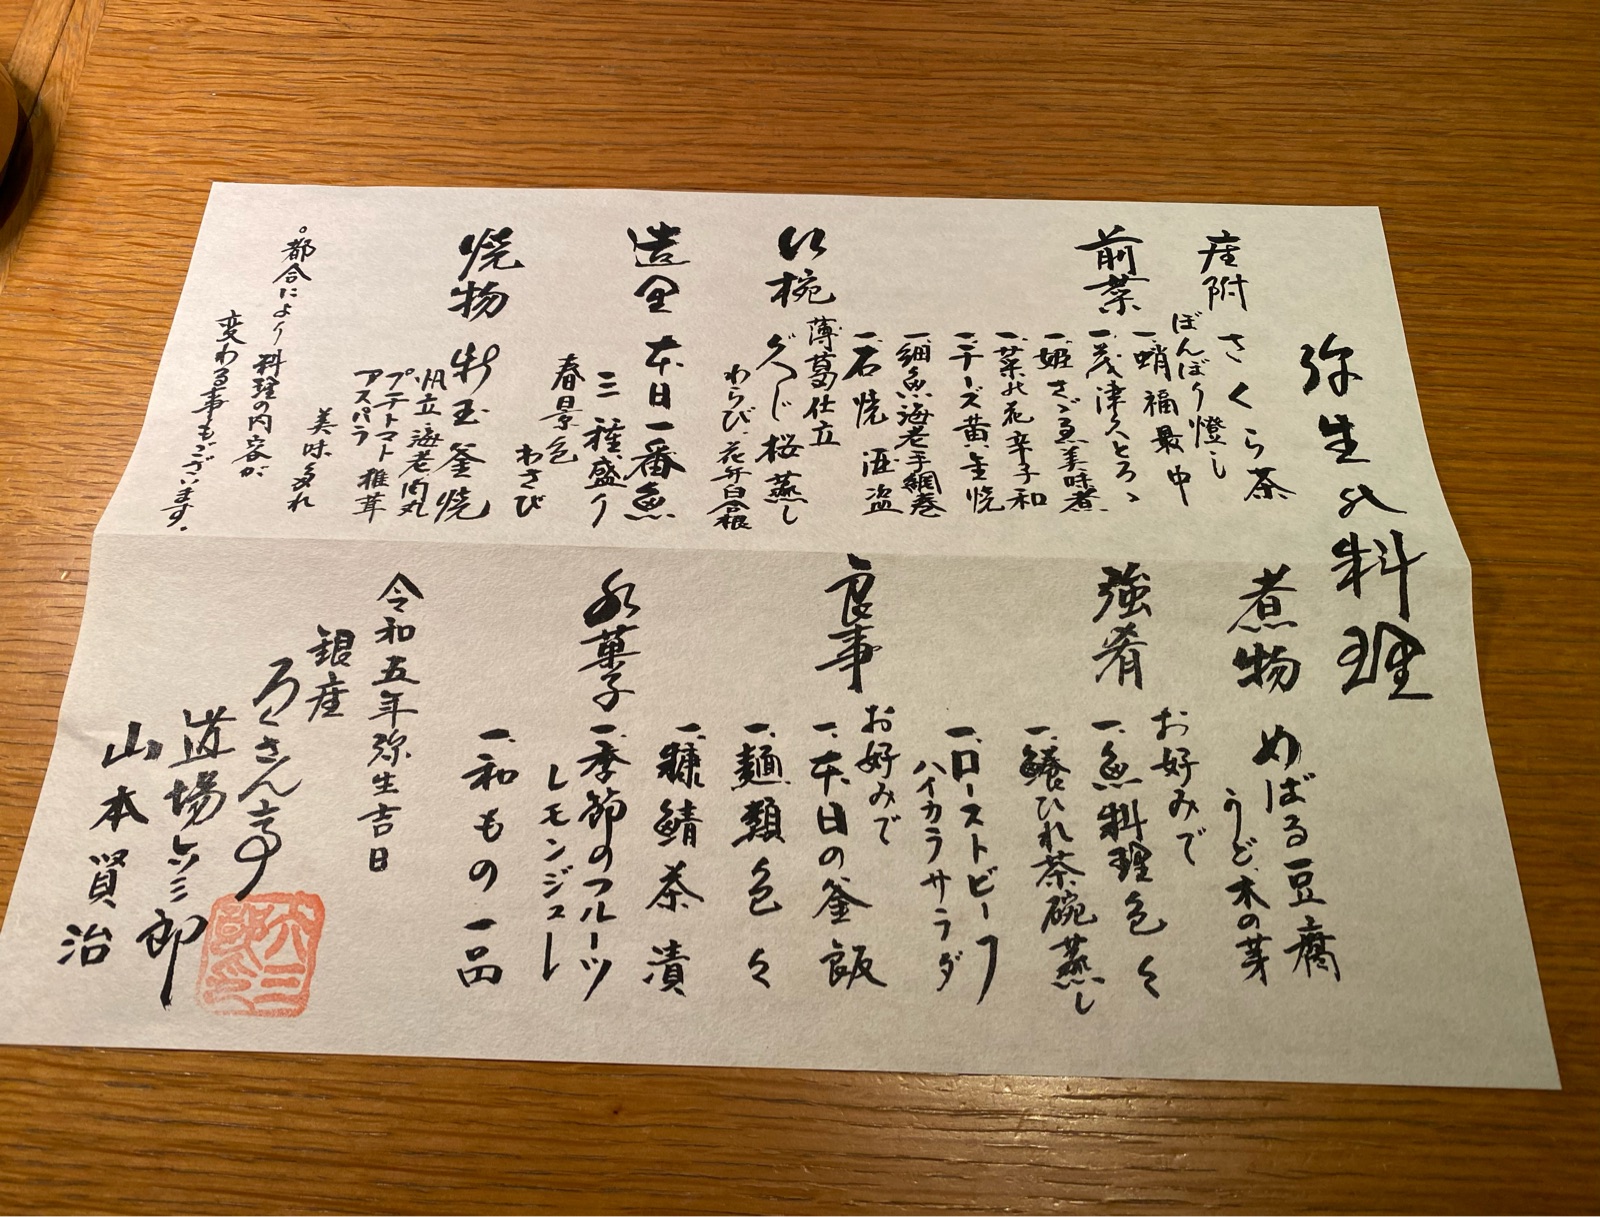 弥生の料理
座附
さくら茶
前菜
ぼんぼり燈し
一、蛸福最中
一、茂津久とろゝ
一、姫さゞゑ美味煮
一、菜の花辛子和
一、チーズ黄金焼
一、細魚海老手綱巻
一、石焼 酒盗
椀
薄葛仕立
ぐじ桜蒸し
わらび、花弁百合根
造里
本日一番魚
三種盛り
春景色
わさび
焼物
新玉釜焼
帆立、海老肉丸
プチトマト 椎茸
アスパラ
美味多れ
。都合により料理の内容が
変わる事もございます。
煮物
めばる豆腐
うど、木の芽
強肴
お好みで
一、魚料理色々
一、鱶ひれ茶碗蒸し
一、ローストビーフ
ハイカラサラダ
食事
お好みで
一、本日の釜飯
一、麺類色々
一、糠鯖茶漬
水菓子
一、季節のフルーツ
レモンジュレ
一、和もの一品
令和五年弥生吉日
銀座
ろくさん亭
道場六三郎
山本賢治